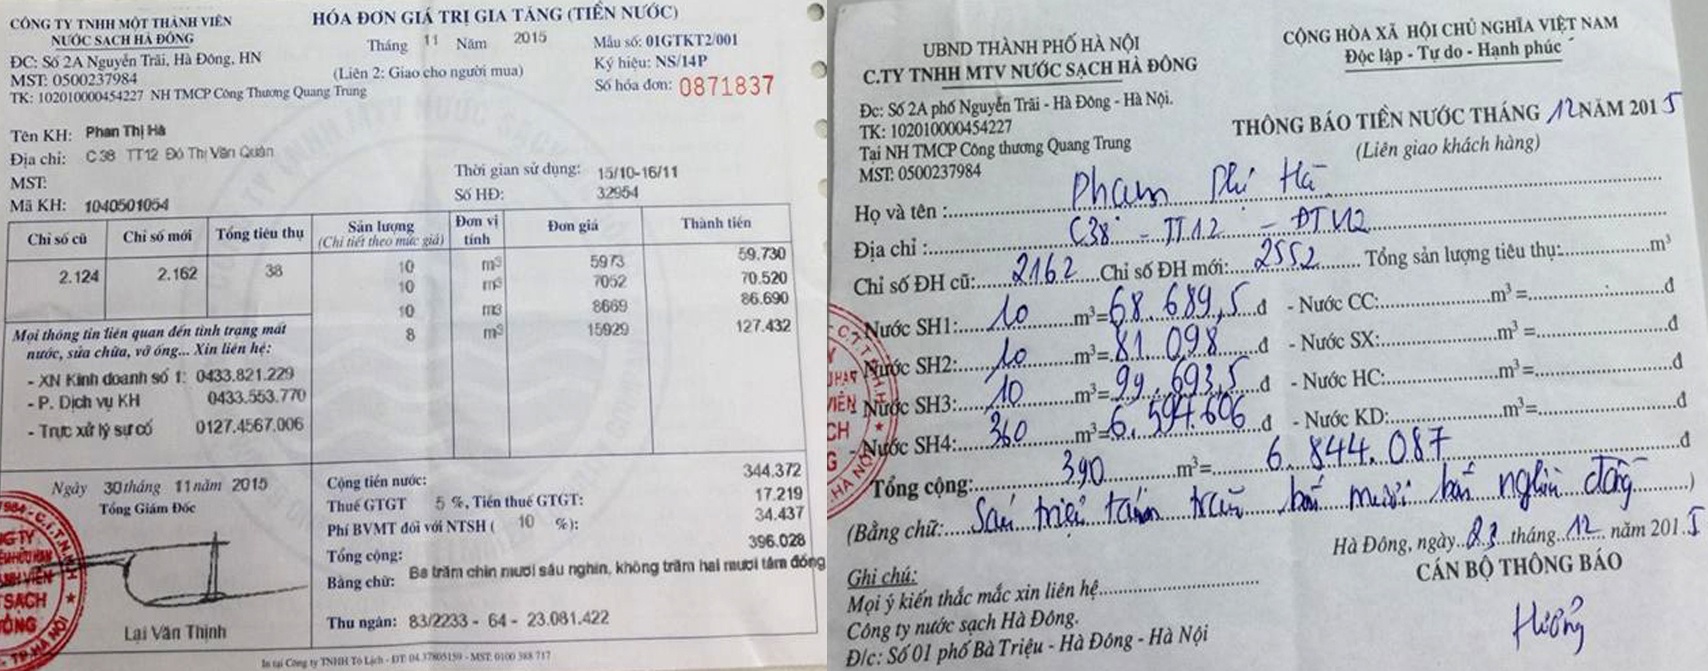 CÔNG TY TNHH MỘT THÀNH VIÊN
NƯỚC SẠCH HÀ ĐÔNG
ĐC: Số 2A Nguyễn Trãi, Hà Đông, HN
MST: 0500237984
TK: 102010000454227 NH TMCP Công Thương Quang Trung
HÓA ĐƠN GIÁ TRỊ GIA TĂNG (TIỀN NƯỚC)
Tháng 11 Năm 2015
(Liên 2: Giao cho người mua)
Mẫu số: 01GTKT2/001
Ký hiệu: NS/14P
Số hóa đơn: 0871837
Tên KH: Phan Thị Hà
Địa chỉ: C38 TT12 Đô Thị Văn Quán
MST:
Mã KH: 1040501054
Thời gian sử dụng: 15/10-16/11
Số HĐ: 32954
Chỉ số cũ Chỉ số mới Tổng tiêu thụ Sản lượng (Chi tiết theo mức giá) Đơn vị tính Đơn giá Thành tiền
2.124 2.162 38 10 m³ 5973 59.730
10 m³ 7052 70.520
10 m3 8669 86.690
8 m³ 15929 127.432
Mọi thông tin liên quan đến tình trạng mất
nước, sửa chữa, vỡ ống... Xin liên hệ:
- XN Kinh doanh số 1: 0433.821.229
- P. Dịch vụ KH 0433.553.770
- Trực xử lý sự cố 0127.4567.006
Ngày 30 tháng 11 năm 2015
Tổng Giám Đốc
Lại Văn Thịnh
Cộng tiền nước: 344.372
Thuế GTGT 5 %, Tiền thuế GTGT: 17.219
Phí BVMT đối với NTSH ( 10 %): 34.437
Tổng cộng: 396.028
Bằng chữ: Ba trăm chín mươi sáu nghìn, không trăm hai mươi tám đồng
Thu ngân: 83/2233 - 64 - 23.081.422
In tại Công ty TNHH Tô Lịch - ĐT: 04.37805159 - MST: 0100 388 717
UBND THÀNH PHỐ HÀ NỘI
C.TY TNHH MTV NƯỚC SẠCH HÀ ĐÔNG
Đc: Số 2A phố Nguyễn Trãi - Hà Đông - Hà Nội.
TK: 102010000454227
Tại NH TMCP Công thương Quang Trung
MST: 0500237984
CỘNG HÒA XÃ HỘI CHỦ NGHĨA VIỆT NAM
Độc lập - Tự do - Hạnh phúc
THÔNG BÁO TIỀN NƯỚC THÁNG 12 NĂM 2015
(Liên giao khách hàng)
Họ và tên : Pham Phi Hà
Địa chỉ : C38 - TT12 - ĐTV12
Chỉ số ĐH cũ: 2162 Chỉ số ĐH mới: 2552 Tổng sản lượng tiêu thụ: m³
- Nước SH1: 10 m³= 68.689,5 đ - Nước CC: m³ = đ
- Nước SH2: 10 m³= 81.098 đ - Nước SX: m³ = đ
- Nước SH3: 10 m³= 99.693,5 đ - Nước HC: m³= đ
- Nước SH4: 360 m³= 6.594.606 đ - Nước KD: m³= đ
Tổng cộng: 390 m³= 6.844.087 đ
(Bằng chữ: Sáu triệu tám trăm bốn mươi bốn nghìn đồng )
Hà Đông, ngày 23 tháng 12 năm 2015
CÁN BỘ THÔNG BÁO
Hương
Ghi chú:
Mọi ý kiến thắc mắc xin liên hệ
Công ty nước sạch Hà Đông.
Đ/c: Số 01 phố Bà Triệu - Hà Đông - Hà Nội